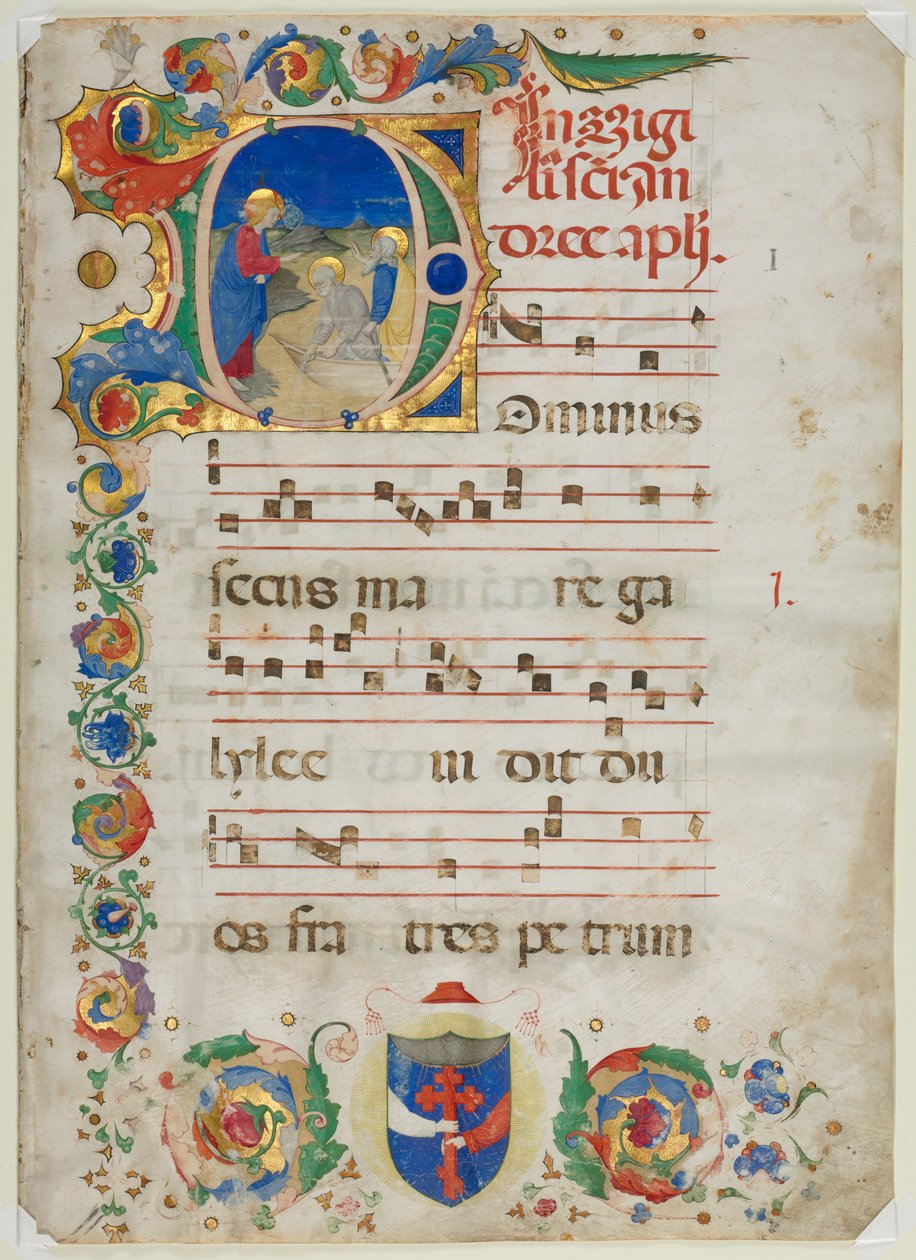 In vigi
liſcian
dree aplj.
I
DOminus
secus ma re ga
J.
lylee ui dit du
os fra tres pe trum